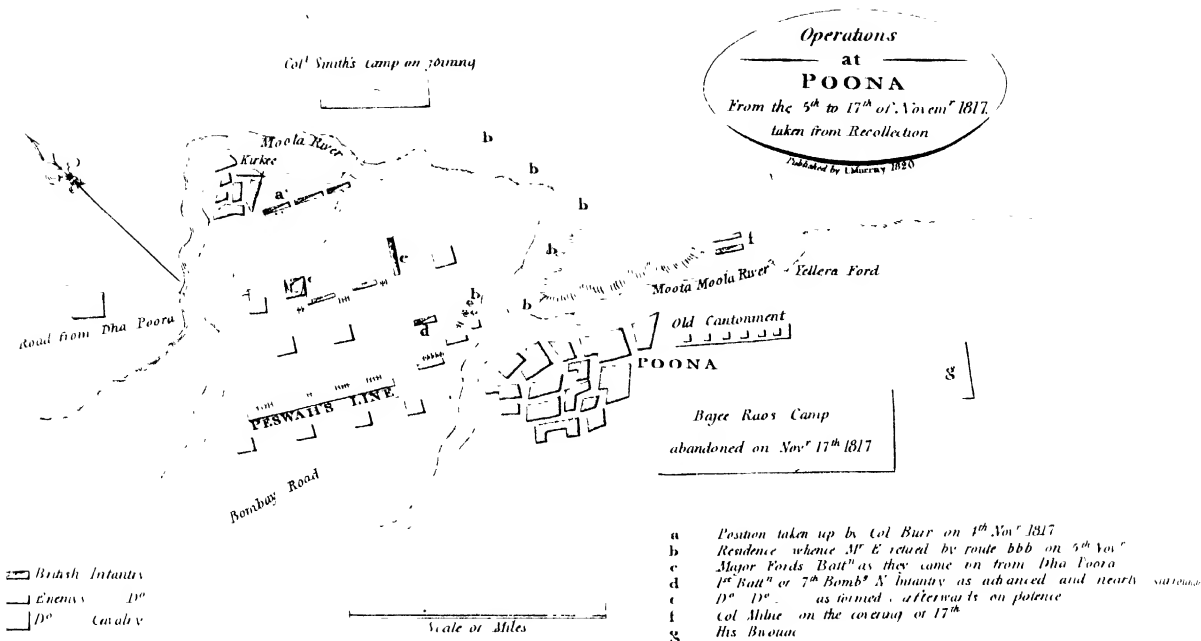 Operations
at
POONA
From the 5th to 17th of Novemr 1817.
taken from Recollection
Published by J. Murray 1820
Coll Smith's Camp on joining
Moola River
Kirkee
a
b
b
b
b
b
b
c
e
f
d
g
Moota Moola River
Yellera Ford
Road from Dha Poora
Old Cantonment
POONA
PESWAH'S LINE
Bajee Raos Camp
abandoned on Novr 17th 1817
Bombay Road
British Infantry
Enemys Do
Do Cavalry
Scale of Miles
a Position taken up by Col Burr on 4th Novr 1817
b Residence whence Mr E retired by route bbb on 5th Novr
c Major Fords Battn as they came on from Dha Poora
d 1st Battn of 7th Bombs N Infantry as advanced and nearly
e Do Do as formed afterwards on potence
f Col Milne on the evening of 17th
g His Bivouac